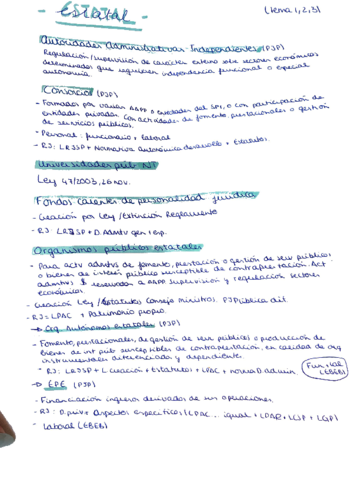 - ESTATAL - (tema 1,2,3)
Autoridades Administrativas Independientes (PJP)
Regulación/supervisión de carácter externo sobre sectores económicos
determinados que requieren independencia funcional o especial
autonomía.
Consorcio (PJP)
- Formados por varias AAPP o entidades del SPI, o con participación de
entidades privadas. Con actividades de fomento prestacionales o gestión
de servicios públicos.
- Personal: funcionario + laboral
- RJ: LRJSP + Normativa autonómica desarrollo + Estatutos.
Universidades púb.
Ley 47/2003, 26 nov.
Fondos carentes de personalidad jurídica
- Creación por Ley/Extinción Reglamento
- RJ: LRJSP + D. Admtv gen+esp.
Organismos públicos estatales
- Para activ admtvs de fomento, prestación o gestión de serv públicos
o bienes de interés público susceptible de contraprestación. Act
admtvs reservadas a AAPP supervisión y regulación sectores
económicos.
- Creación Ley/Estatutos Consejo Ministros. PJPública dif.
- RJ: LPAC + Patrimonio propio
→ Org Autónomos estatales (PJP)
- Fomento, prestacionales, de gestión de serv públicos o producción de
bienes de int pub susceptibles de contraprestación, en calidad de org
instrumentales diferenciados y dependiente.
* RJ: LRJSP + L creación + Estatutos + LPAC + norma D. admin.
Fun+lab (EBEB)
→ EPE (PJP)
- Financiación ingresos derivados de sus operaciones.
- RJ: D. priv+ Aspectos específicos (LPAC... igual + LPAP + LCSP + LGP)
- Laboral (EBEB)